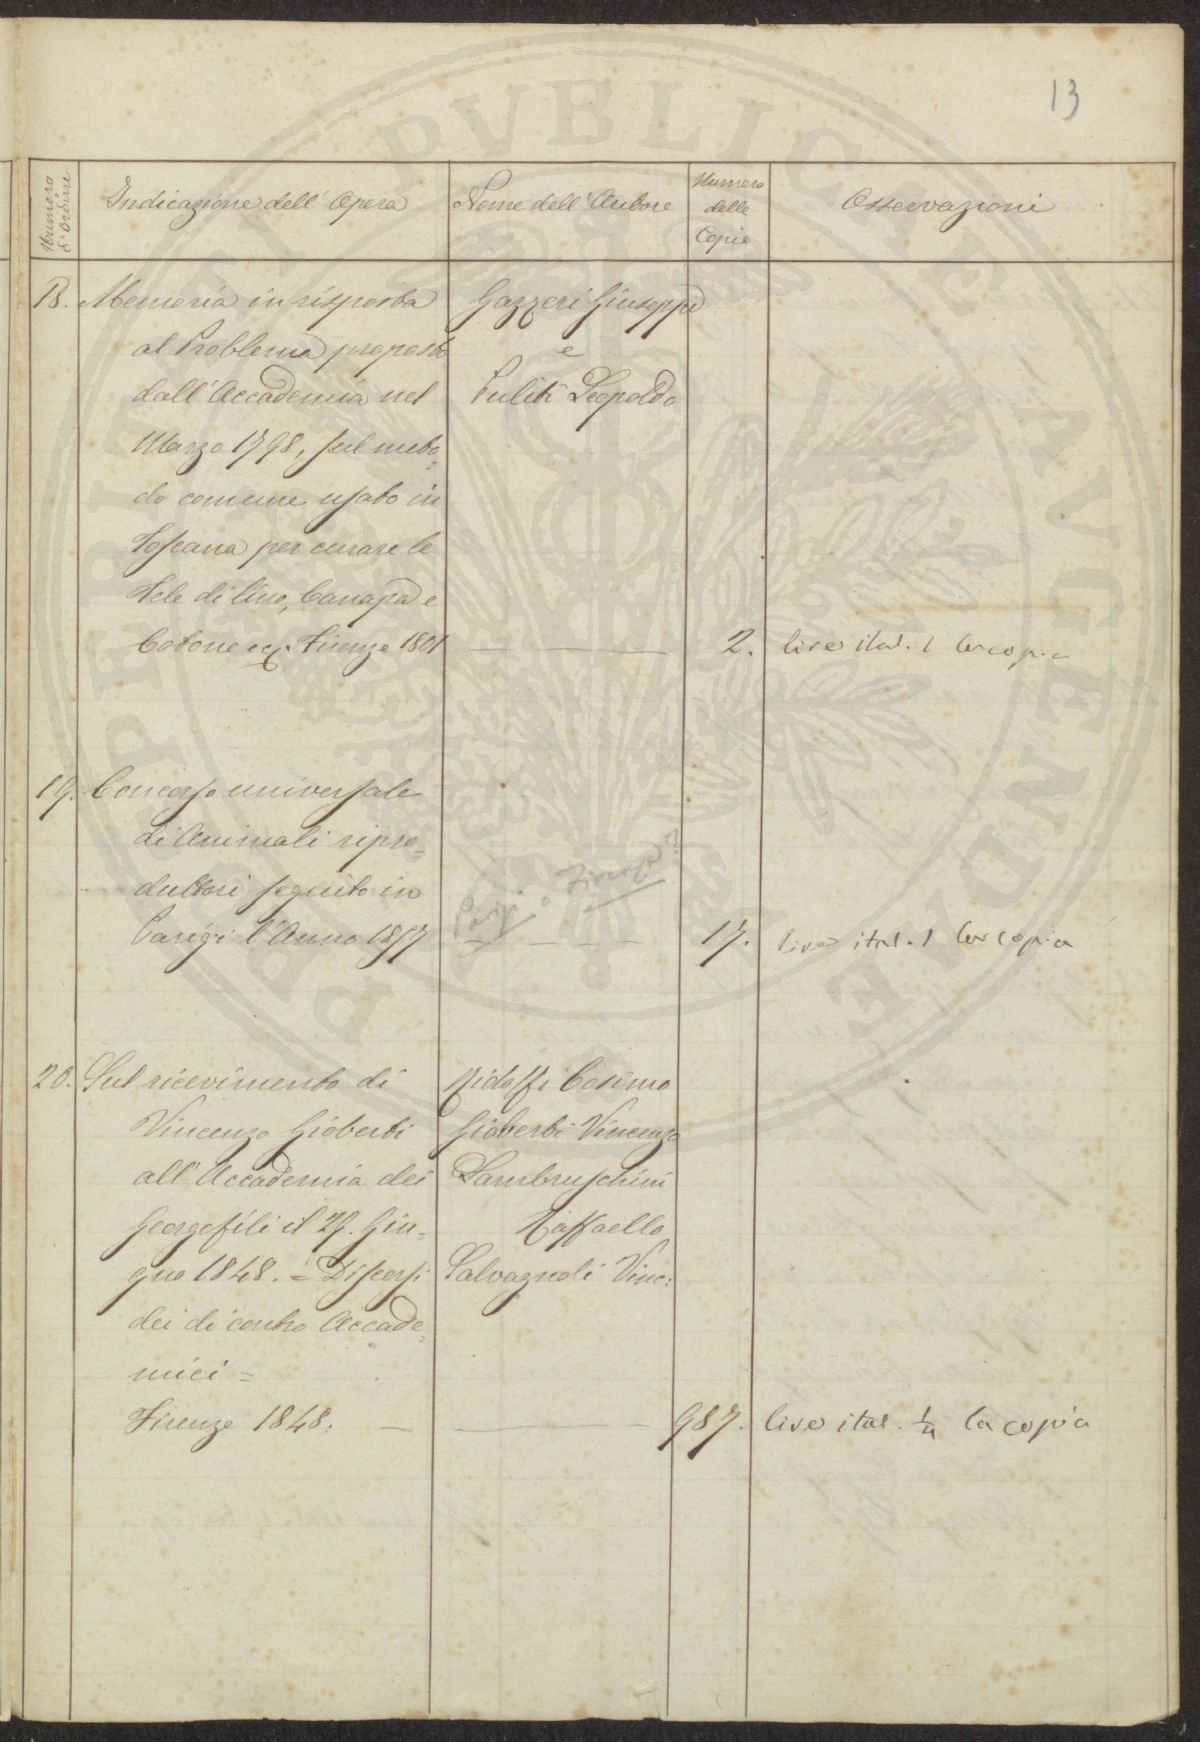 13
Numero d'Ordine
Indicazione dell' Opera
Nome dell' Autore
Numero delle Copie
Osservazioni
18. Memoria in risposta
al Problema proposto
dall' Accademia nel
Marzo 1798, sul meto=
do comune usato in
Toscana per curare le
Tele di lino, Canapa e
Cotone ec. Firenze 1801
Gazzeri Giuseppe
e
Puliti Leopoldo
2.
lire ital. 1 la copia
19. Concorso universale
di Animali ripro=
duttori seguito in
Parigi l'Anno 1857
Parigi o Firenze?
17.
lire ital. 1 la copia
20. Sul ricevimento di
Vincenzo Gioberti
all' Accademia dei
Georgofili il 29. Giu=
gno 1848. = Discorsi
dei di contro Accade=
mici =
Firenze 1848.
Ridolfi Cosimo
Gioberti Vincenzo
Lambruschini
Raffaello
Salvagnoli Vinc:
987.
lire ital. 1/4 la copia
PVBLICAE
AVGENDAE